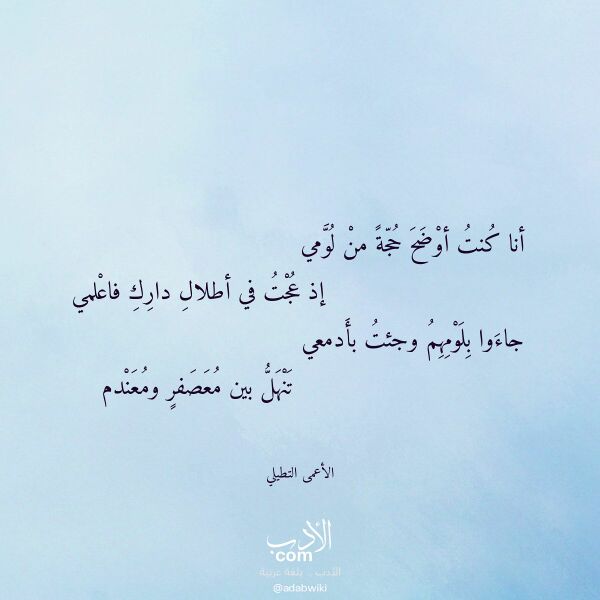 أنا كُنتُ أوْضَحَ حُجّةً منْ لُوَّمي
إذ عُجْتُ في أطلالِ دارِكِ فاعْلمي
جاءَوا بِلَوْمِهِمُ وجئتُ بأَدمعي
تَنْهَلُّ بين مُعَصَفرٍ ومُعَنْدم
الأعمى التطيلي
الأدب
com
الأدب .. بلغة عربية
@adabwiki